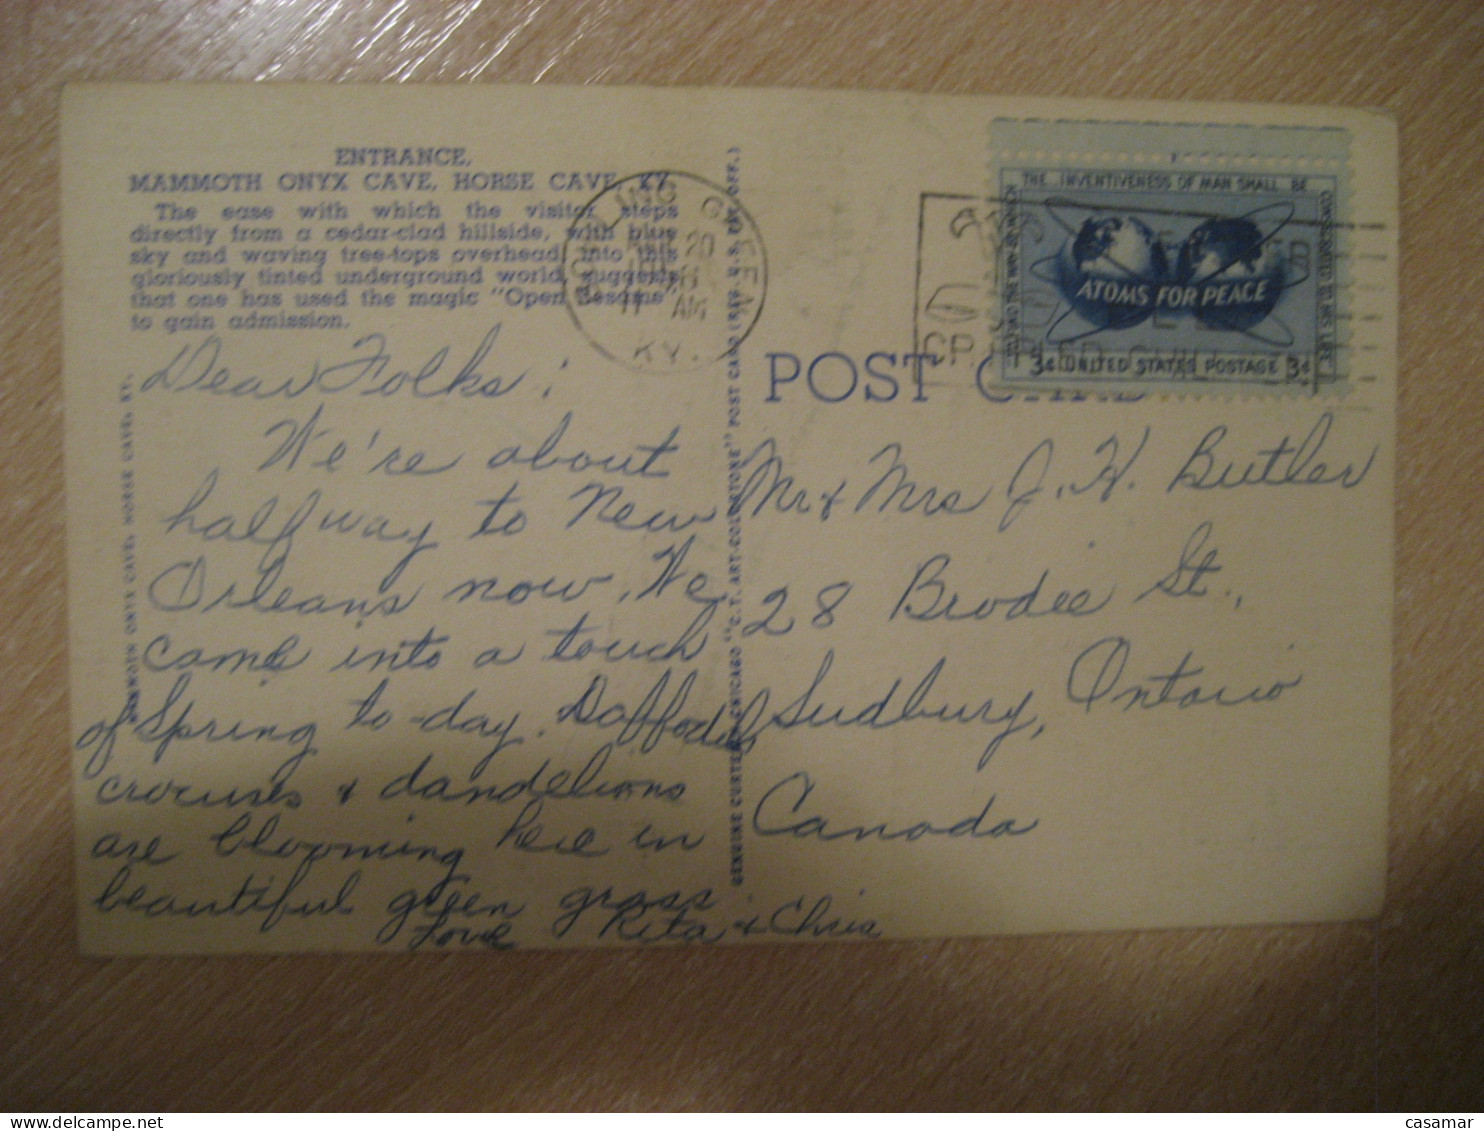 ENTRANCE,
MAMMOTH ONYX CAVE, HORSE CAVE, KY.
The ease with which the visitor steps
directly from a cedar-clad hillside, with blue
sky and waving tree-tops overhead, into this
gloriously tinted underground world, suggests
that one has used the magic "Open Sesame"
to gain admission.
BOWLING GREEN
20
11 AM
KY.
Dear Folks:
We're about
halfway to New
Orleans now. We
came into a touch
of Spring to-day. Daffodils,
crocuses & dandelions
are blooming here in
beautiful green grass.
Love Rita & Chris
MAMMOTH ONYX CAVE, HORSE CAVE, KY.
GENUINE CURTEICH-CHICAGO "C.T. ART-COLORTONE" POST CARD (REG. U.S. PAT. OFF.)
POST CARD
THE INVENTIVENESS OF MAN SHALL BE
CONSECRATED TO HIS LIFE
ATOMS FOR PEACE
3¢ UNITED STATES POSTAGE 3¢
Mr & Mrs J. H. Butler
28 Brodie St.,
Sudbury, Ontario
Canada
casamar